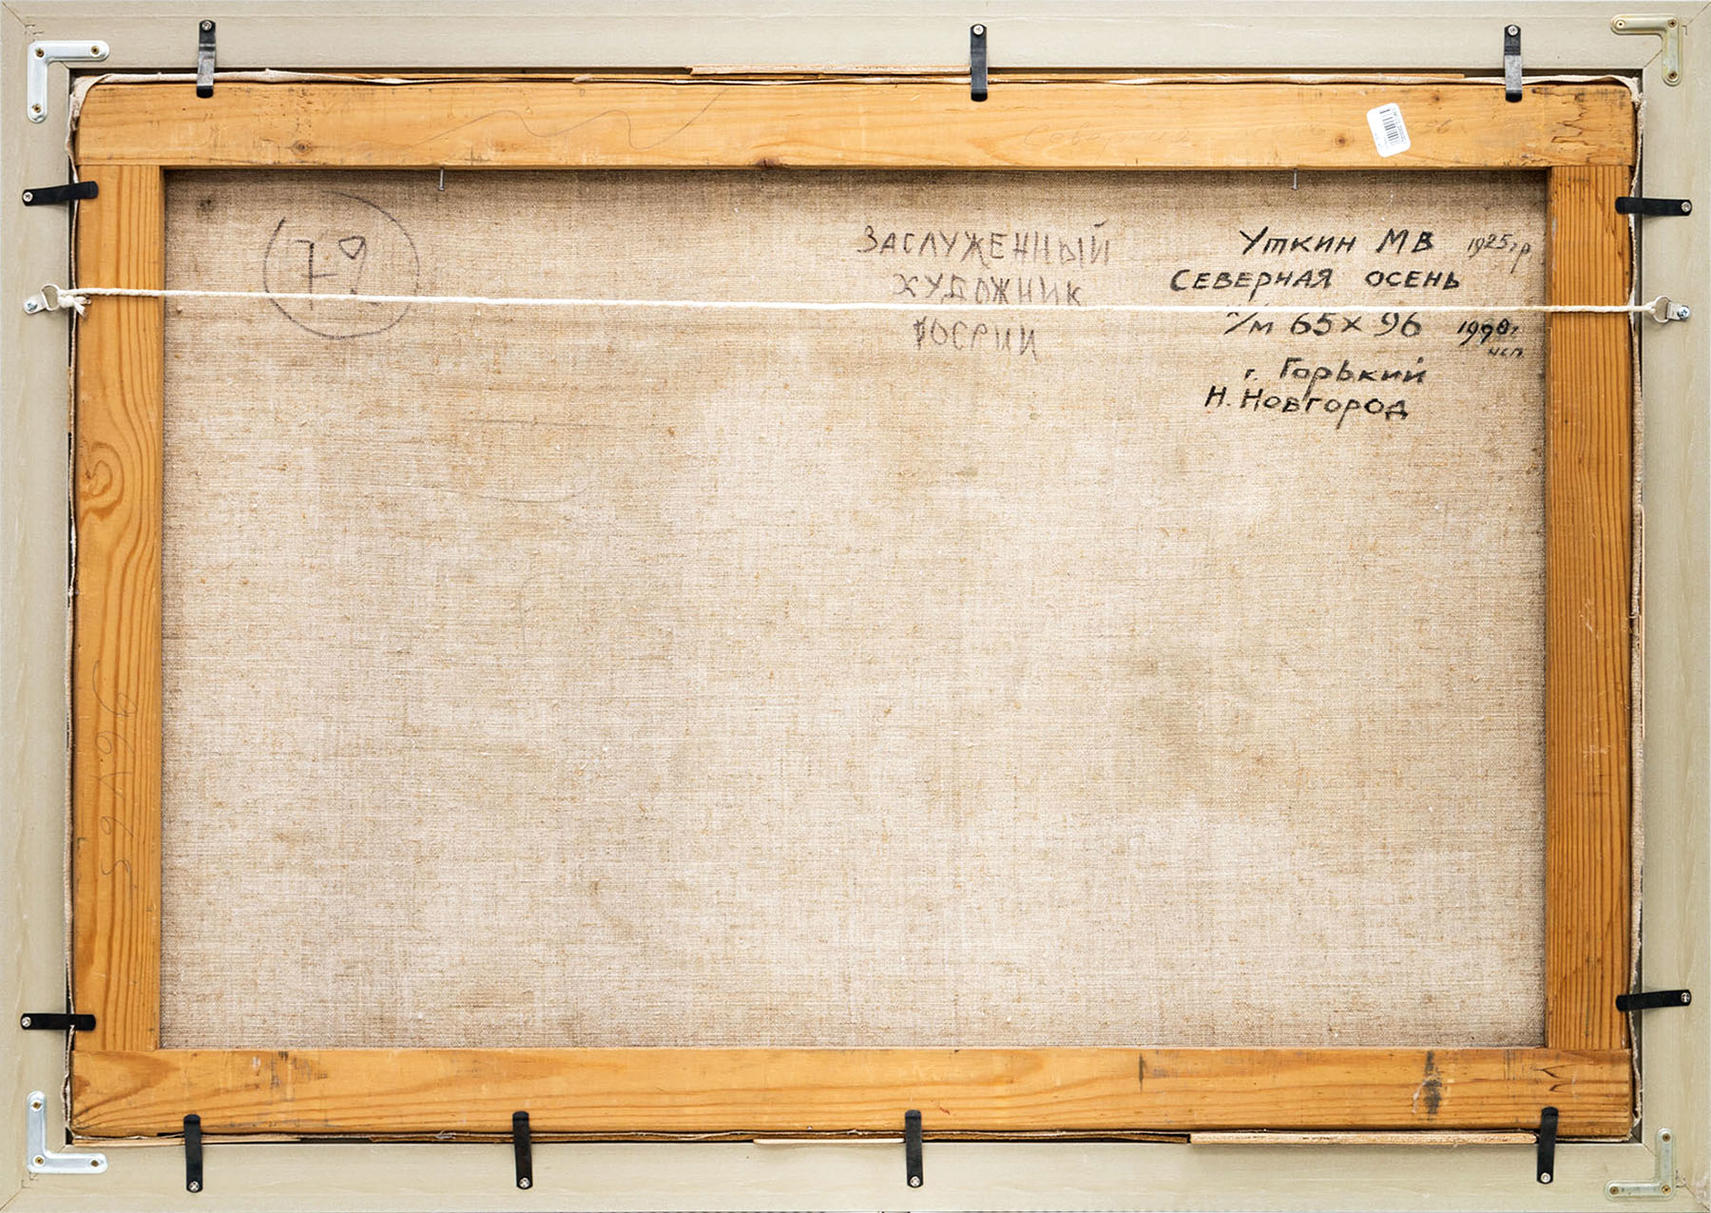 79
ЗАСЛУЖЕННЫЙ
ХУДОЖНИК
РОССИИ
Уткин МВ 1925гр
СЕВЕРНАЯ ОСЕНЬ
х/м 65х96 1990г.
исп.
г. Горький
Н. Новгород
59х96